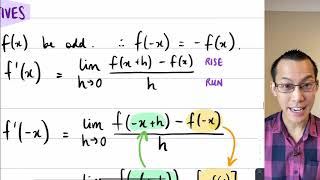 IVES
f(x) be odd. ∴ f(-x) = -f(x).
f'(x) = lim h→0 f(x+h) - f(x) / h RISE RUN
f'(-x) = lim h→0 f(-x+h) - f(-x) / h